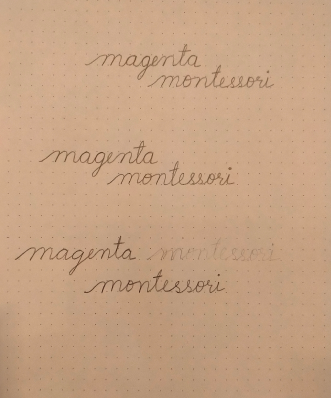 magenta
montessori
magenta
montessori
magenta montessori
montessori